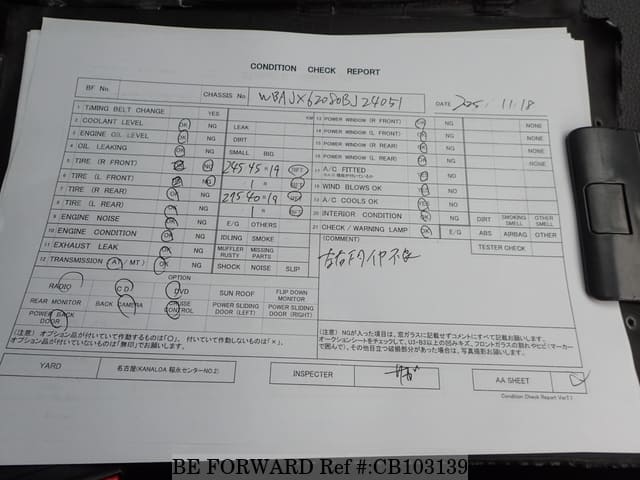 CONDITION CHECK REPORT
BF No. CHASSIS No. WBAJX62080BJ24051 DATE 2025. 11.18
1 TIMING BELT CHANGE YES KM
2 COOLANT LEVEL OK NG LEAK
3 ENGINE OIL LEVEL OK NG DIRT
4 OIL LEAKING OK NG SMALL BIG
5 TIRE (R FRONT) NG 245 45 R 19 RFT
6 TIRE (L FRONT) NG RFT
7 TIRE (R REAR) OK NG 275 40 R 19 RFT
8 TIRE (L REAR) OK NG RFT
9 ENGINE NOISE OK NG E/G OTHERS
10 ENGINE CONDITION OK NG IDLING SMOKE
11 EXHAUST LEAK OK NG MUFFLER RUSTY MISSING PARTS
12 TRANSMISSION (AT / MT) OK NG SHOCK NOISE SLIP
13 POWER WINDOW (R FRONT) OK NG NONE
14 POWER WINDOW (L FRONT) OK NG NONE
15 POWER WINDOW (R REAR) OK NG NONE
16 POWER WINDOW (L REAR) OK NG NONE
17 A/C FITTED YES NO
18 WIND BLOWS OK YES NO
19 A/C COOLS OK YES NO
20 INTERIOR CONDITION OK NG DIRT SMOKING SMELL OTHER SMELL
21 CHECK / WARNING LAMP OK NG E/G ABS AIRBAG OTHER
(COMMENT) TESTER CHECK
OPTION
RADIO CD DVD SUN ROOF FLIP DOWN MONITOR
REAR MONITOR BACK CAMERA CRUISE CONTROL POWER SLIDING DOOR (LEFT) POWER SLIDING DOOR (RIGHT)
POWER BACK DOOR
(注意) オプション品が付いていて作動するものは「○」、付いていて作動しないものは「×」、
オプション品が付いていないものは「無印」でお願いします。
(注意) NGが入った項目は、窓ガラスに記載せずコメントにすべて記載お願いします。
オークションシートをチェックして、U3・B3以上の凹みキズ、フロントガラスの割れやヒビ(マーカー
で囲んで)、その他目立つ破損部分があった場合は、写真撮影お願いします。
YARD 名古屋(KANALOA 稲永センターNO.2) INSPECTER AA SHEET
Condition Check Report Ver7.1
BE FORWARD Ref #:CB103139